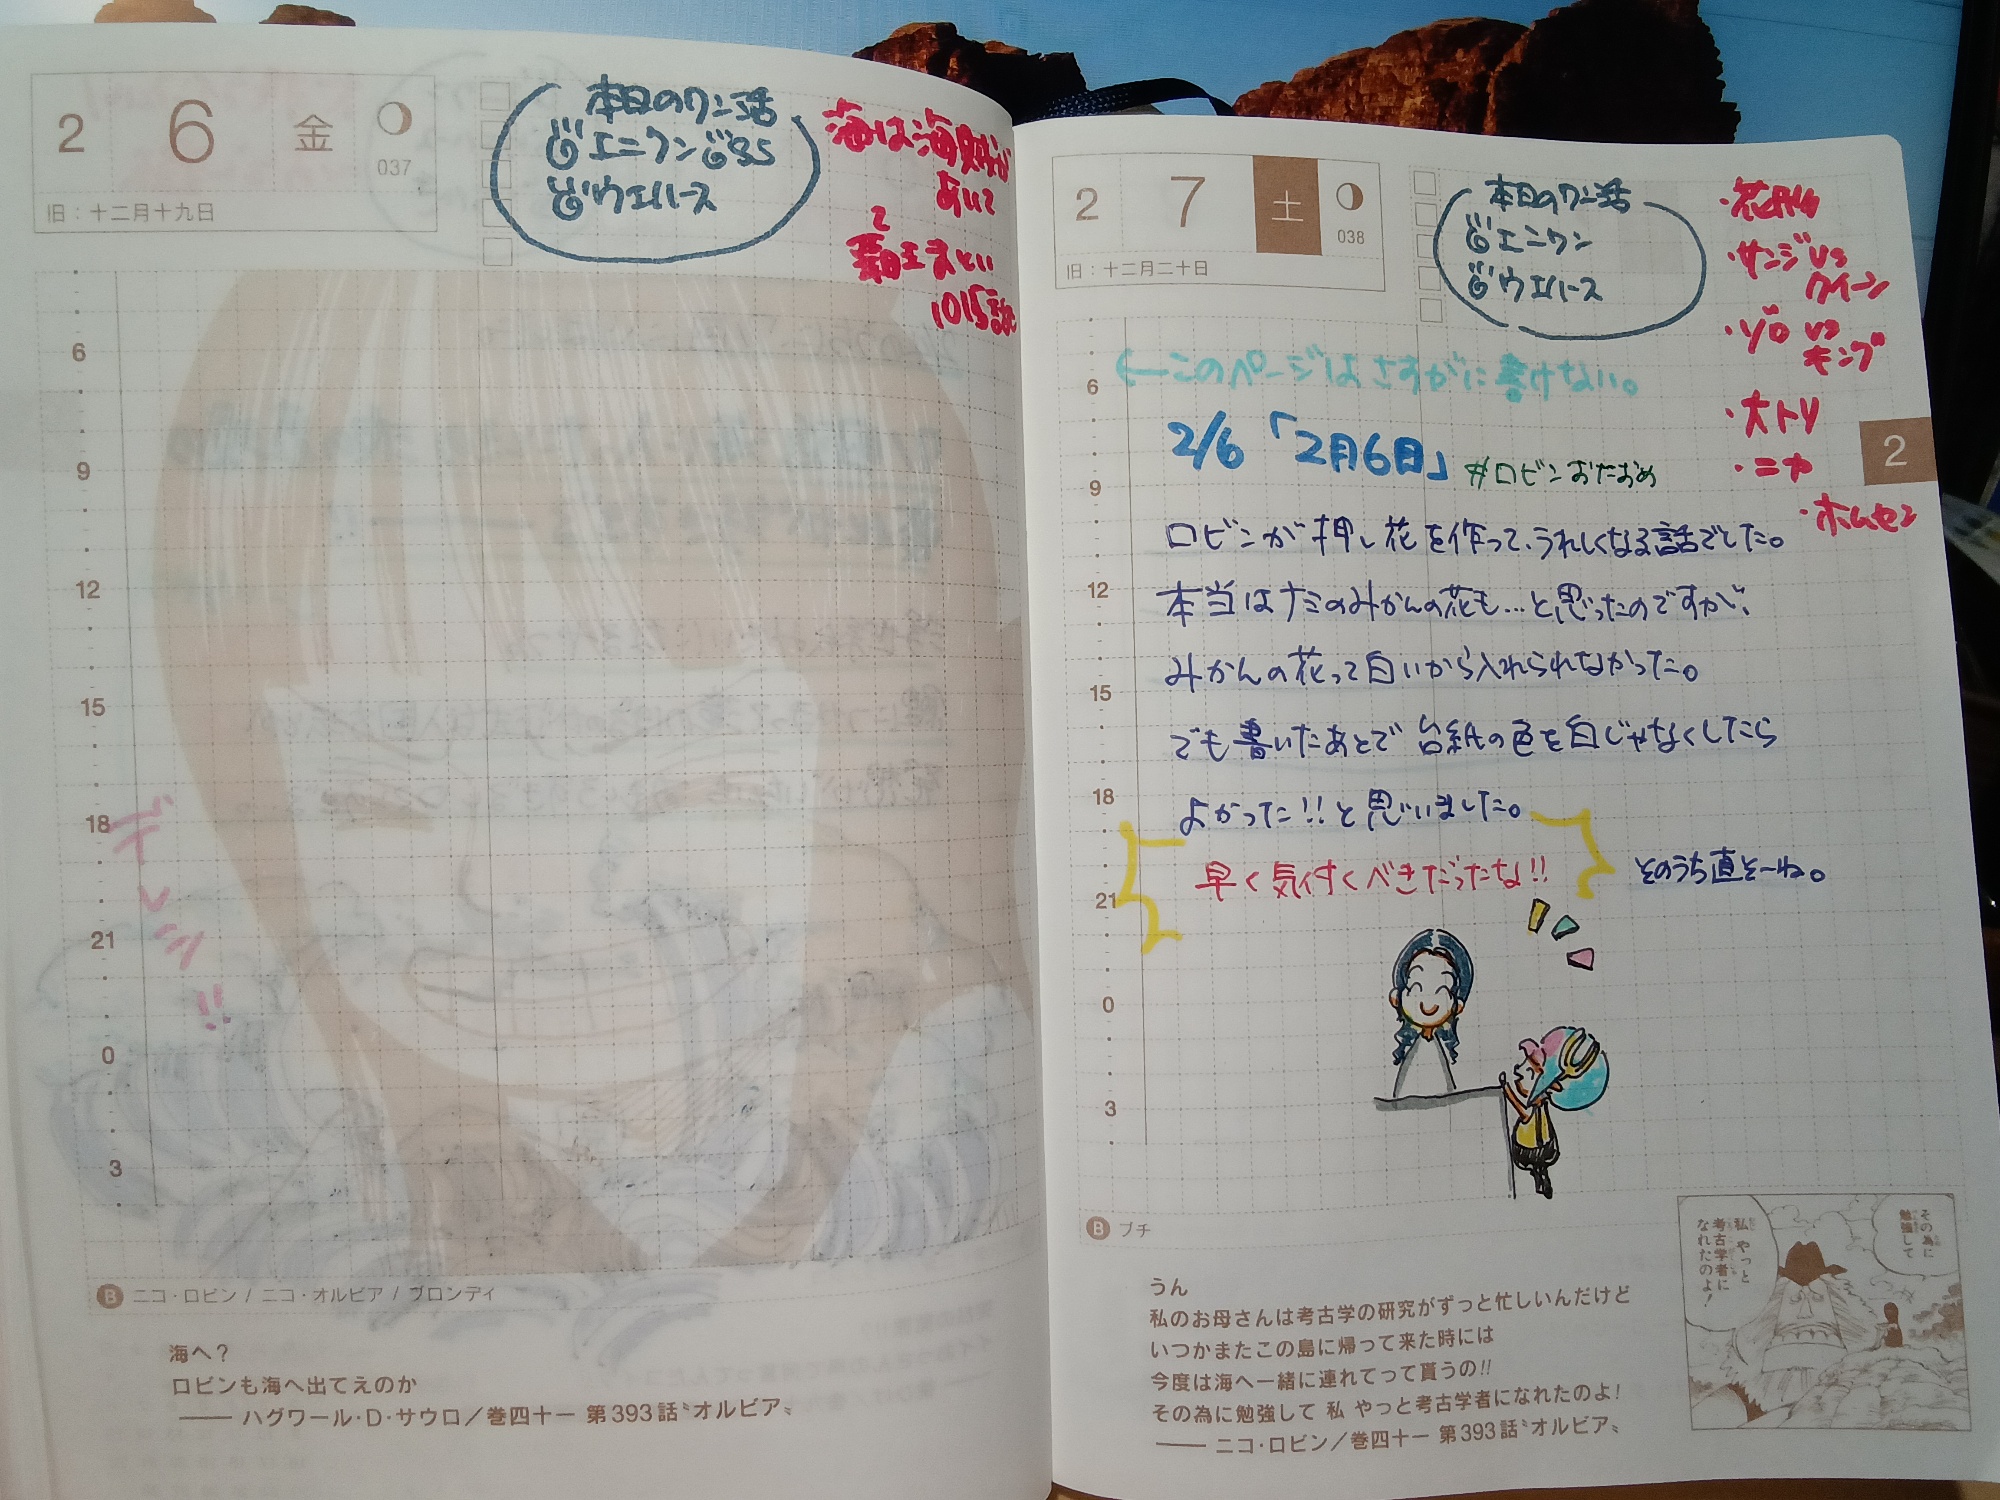 2 6 金
037
旧：十二月十九日
本日のワン活
エニワン 85
ウエハース
海は
あいて
2
覇王まとい
1015話
6
9
12
15
18
21
0
3
デレシシ!!
B ニコ・ロビン / ニコ・オルビア / ブロンディ
海へ？
ロビンも海へ出てえのか
―― ハグワール・D・サウロ／巻四十一 第393話〝オルビア〟
2 7 土
038
旧：十二月二十日
本日のワン活
エニワン
ウエハース
・サンジvs
クイーン
・ゾロ vs
キング
・大トリ
・ニカ
・ホムセン
2
←このページはさすがに書けない。
2/6「2月6日」#ロビンおたおめ
ロビンが押し花を作って、うれしくなる話でした。
本当はナミのみかんの花も…と思ったのですが、
みかんの花って白いから入れられなかった。
でも書いたあとで台紙の色を白じゃなくしたら
よかった!!と思いました。
早く気付くべきだったな!! そのうち直そーね。
6
9
12
15
18
21
0
3
B プチ
その為に
勉強して
私 やっと
考古学者に
なれたのよ！
うん
私のお母さんは考古学の研究がずっと忙しいんだけど
いつかまたこの島に帰って来た時には
今度は海へ一緒に連れてって貰うの!!
その為に勉強して 私 やっと考古学者になれたのよ！
―― ニコ・ロビン／巻四十一 第393話〝オルビア〟